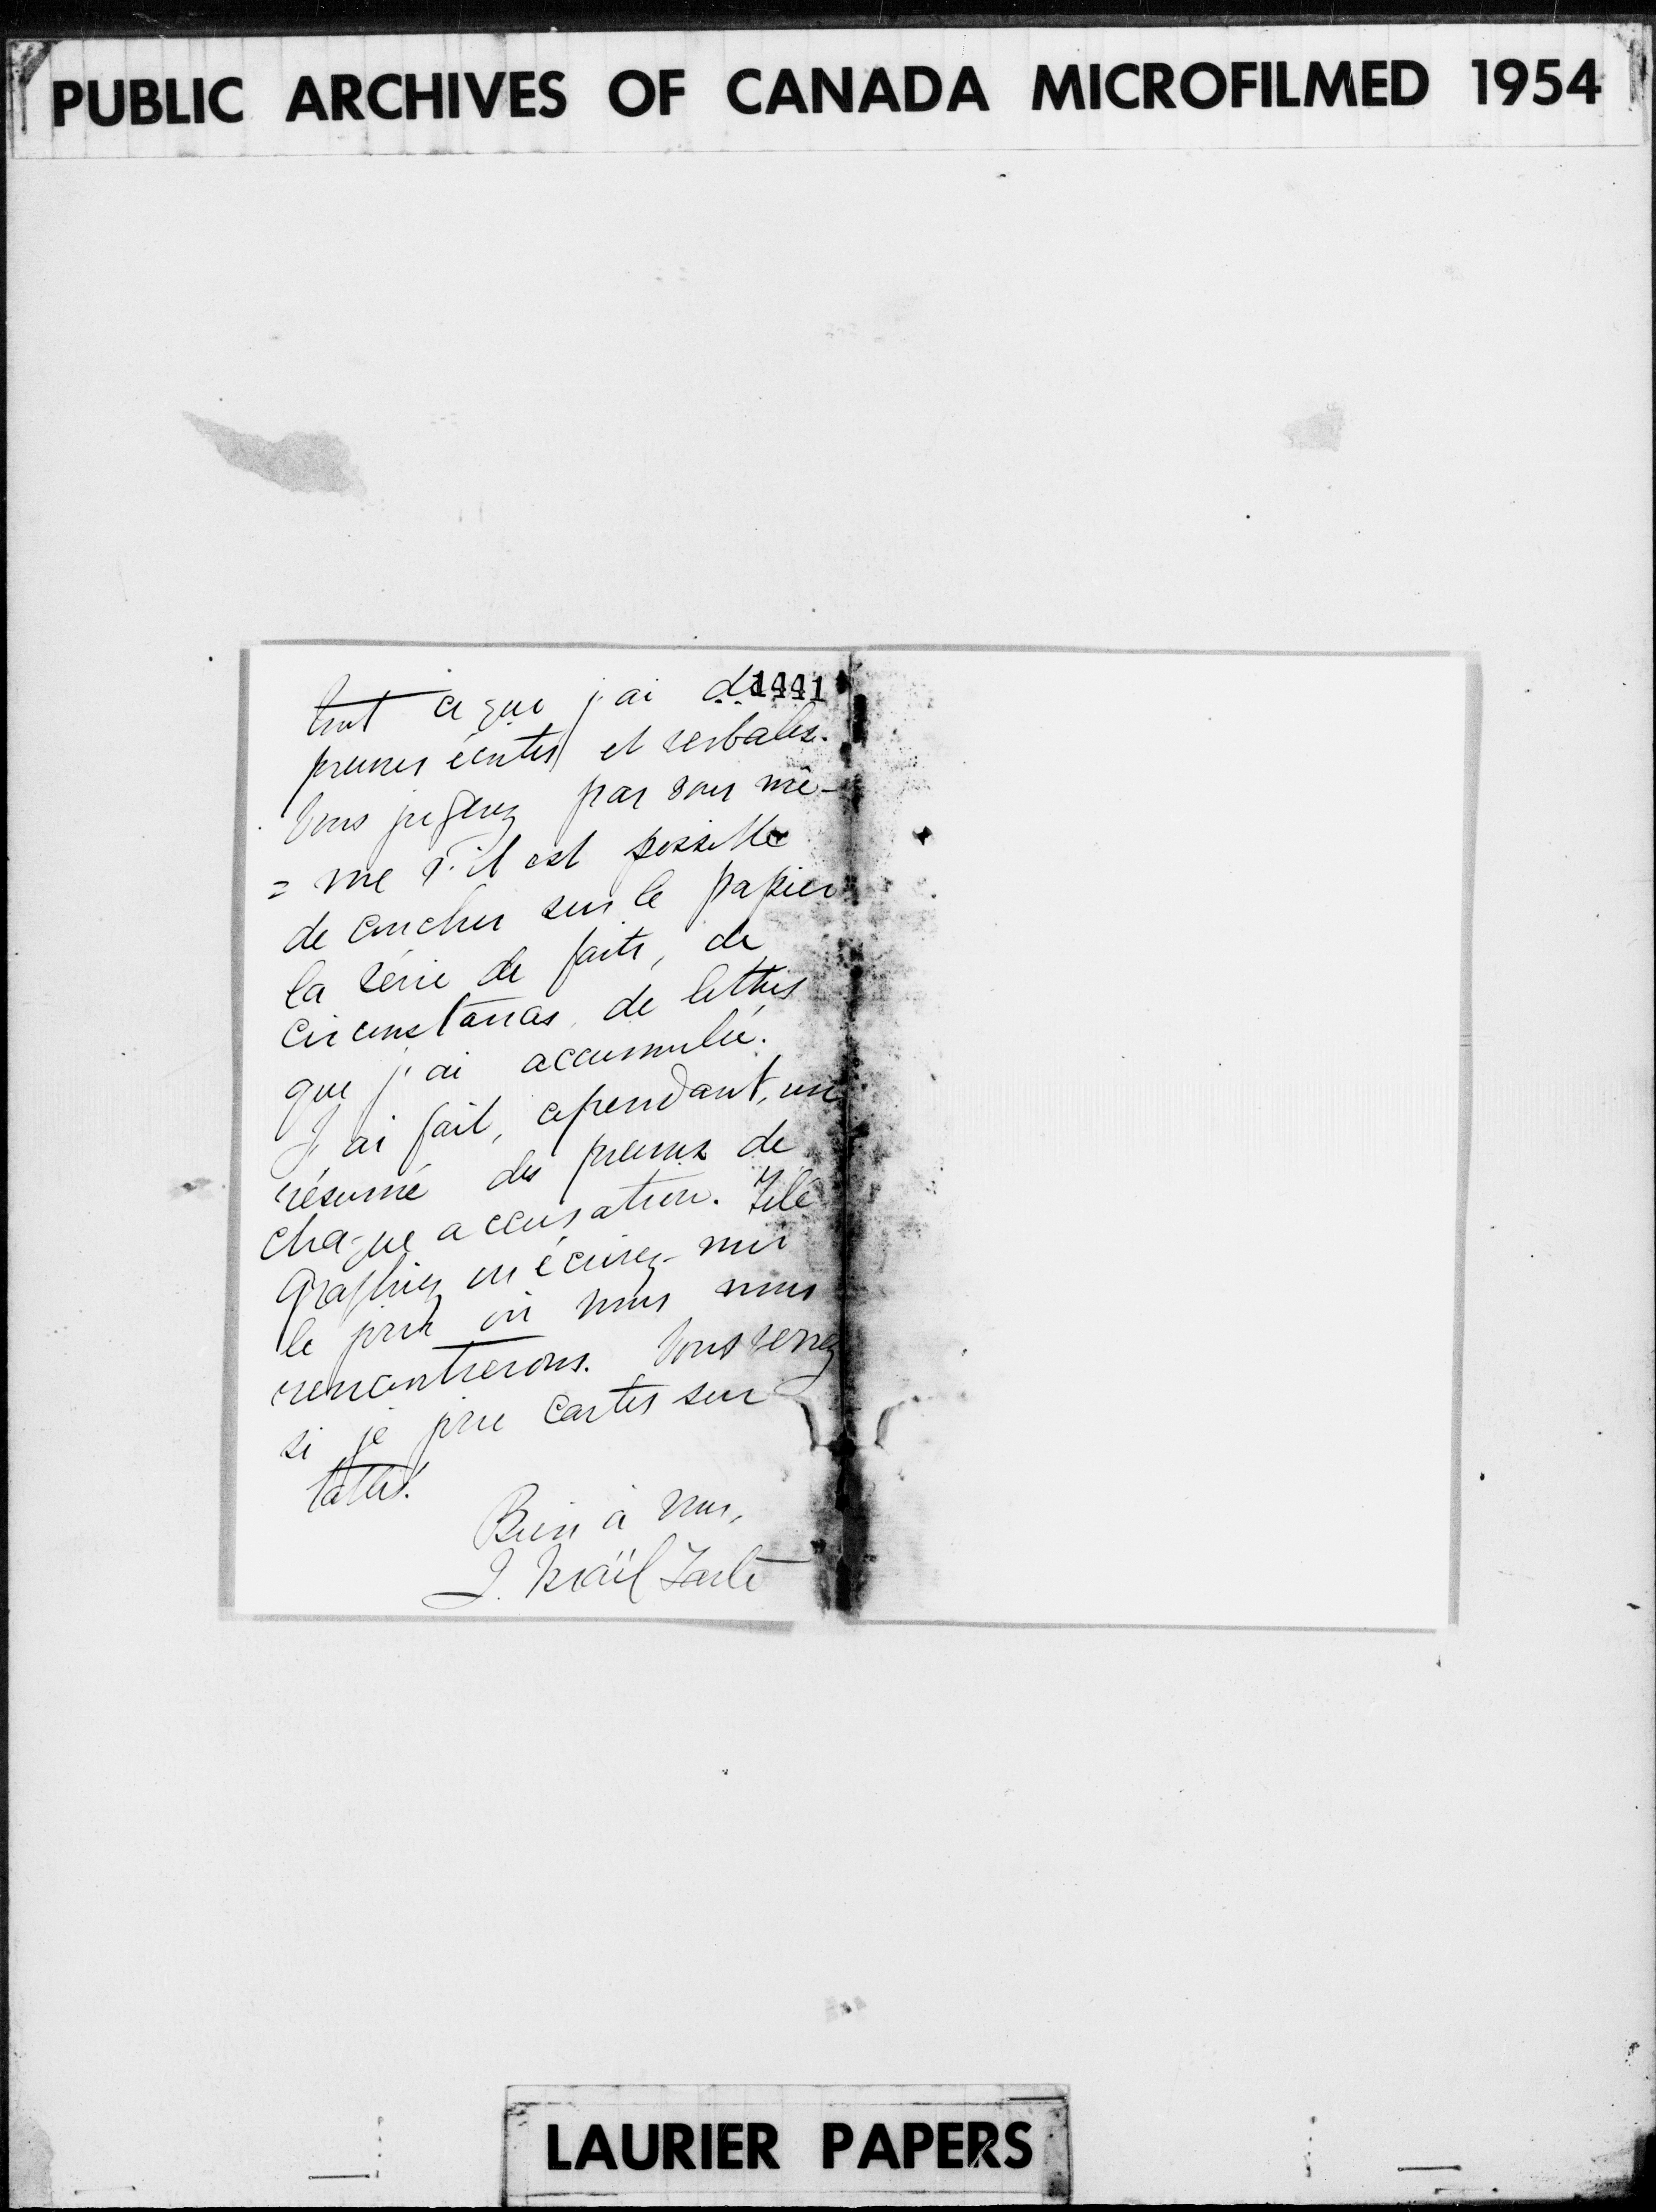 PUBLIC ARCHIVES OF CANADA MICROFILMED 1954
1441
tout ce que j'ai de
preuves écrites et verbales.
Vous jugerez par vous mê-
= me s'il est possible
de coucher sur le papier
la série de faits, de
circonstances, de lettres
que j'ai accumulée.
J'ai fait, cependant, un
résumé des preuves de
chaque accusation. Télé
graphiez ou écrivez-moi
le jour où nous nous
rencontrerons. Vous verrez
si je joue cartes sur
tables.
Bien à vous,
J. Israël Tarte
LAURIER PAPERS